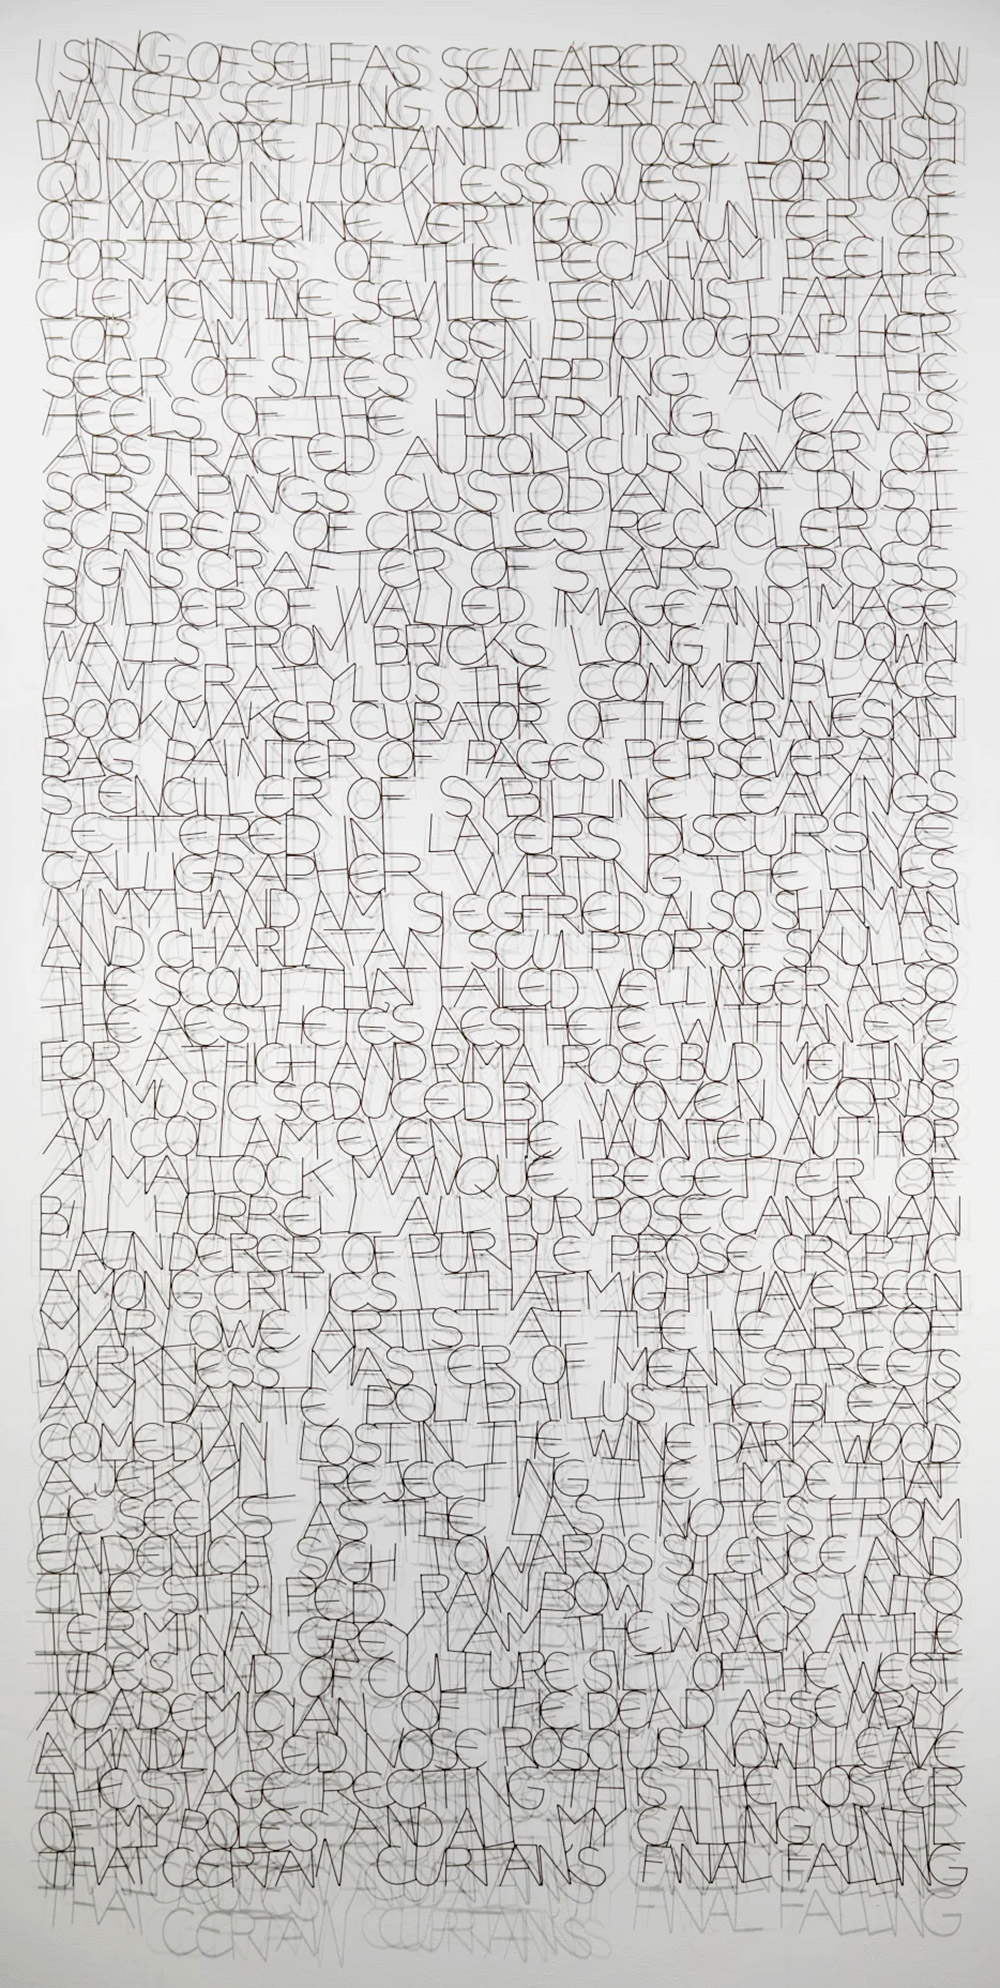 I SING OF SELF AS SEAFARER AWKWARD IN
WATER SETTING OUT FOR FAR HAVENS
DAILY MORE DISTANT OF TOGE DONNISH
QUIXOTE IN LUCKLESS QUEST FOR LOVE
OF MADELEINE VERTIGO HAUNTER OF
PORTRAITS OF THE PECKHAM PEELER
CLEMENTINE SEVILLE FEMINIST FATALE
FOR I AM THE RISEN PHOTOGRAPHER
SEER OF SITES SNAPPING AT THE
HEELS OF THE HURRYING YEARS
ABSTRACTED AUTOLYCUS SAVER OF
SCRAPINGS CUSTODIAN OF DUST
SCRIBER OF CIRCLES RECYCLER OF
SIGNS CRAFTER OF STARS CROSS
BUILDER OF WALLED IMAGE AND IMAGE
WALLS FROM BRICKS LONG LAID DOWN
I AM CRATYLUS THE COMMONPLACE
BOOKMAKER CURATOR OF THE CRANESKIN
BAG PAINTER OF PAGES PERSEVERANT
STENCILLER OF SYBILLINE LEAVINGS
LETTERED IN LAYERS DISCURSIVE
CALLIGRAPHER WRITING THE LINES
IN MY HAND I AM SIEGFRIED ALSO SHAMAN
AND CHARLATAN SCULPTOR OF SKULLS
THE SCOUT THAT FAILED VELLINGER ALSO
THE AESTHETES AESTHETE WITH AN EYE
FOR A THIGH AND RIMA ROSEBUD MELTING
TO MUSIC SEDUCED BY WOVEN WORDS
AM COLL AM EVEN THE HAUNTED AUTHOR
A MALLOCK MANQUE BEGETTER OF
BILL HURRELL ALL PURPOSE CANADIAN
LAUNDERER OF PURPLE PROSE CRYPTIC
AMONG CRITICS I THAT MIGHT HAVE BEEN
MARLOWE ARTIST AT THE HEART OF
DARKNESS MASTER OF MEAN STREETS
AM DANTE POLIPHILUS THE BLEAK
COMEDIAN LOST IN THE WINE DARK WOOD
A JEKYLL REJECTING THE HYDE THAT
HE SEEKS AS THE LAST NOTES FROM
ENDENICH SIGH TOWARDS SILENCE AND
THE STRIPED RAINBOW SINKS INTO
TERMINAL GREY I AM THE WRACK AT THE
TIDES END OF CULTURE SILT OF THE WEST
ACADEMICIAN OF THE DEAD ASSEMBLY
A KINDLY RED NOSE ROSCIUS NOW I LEAVE
THE STAGE RECITING THIS THE ROSTER
OF MY ROLES AND ALL MY CALLING UNTIL
THAT CERTAIN CURTAIN'S FINAL FALLING